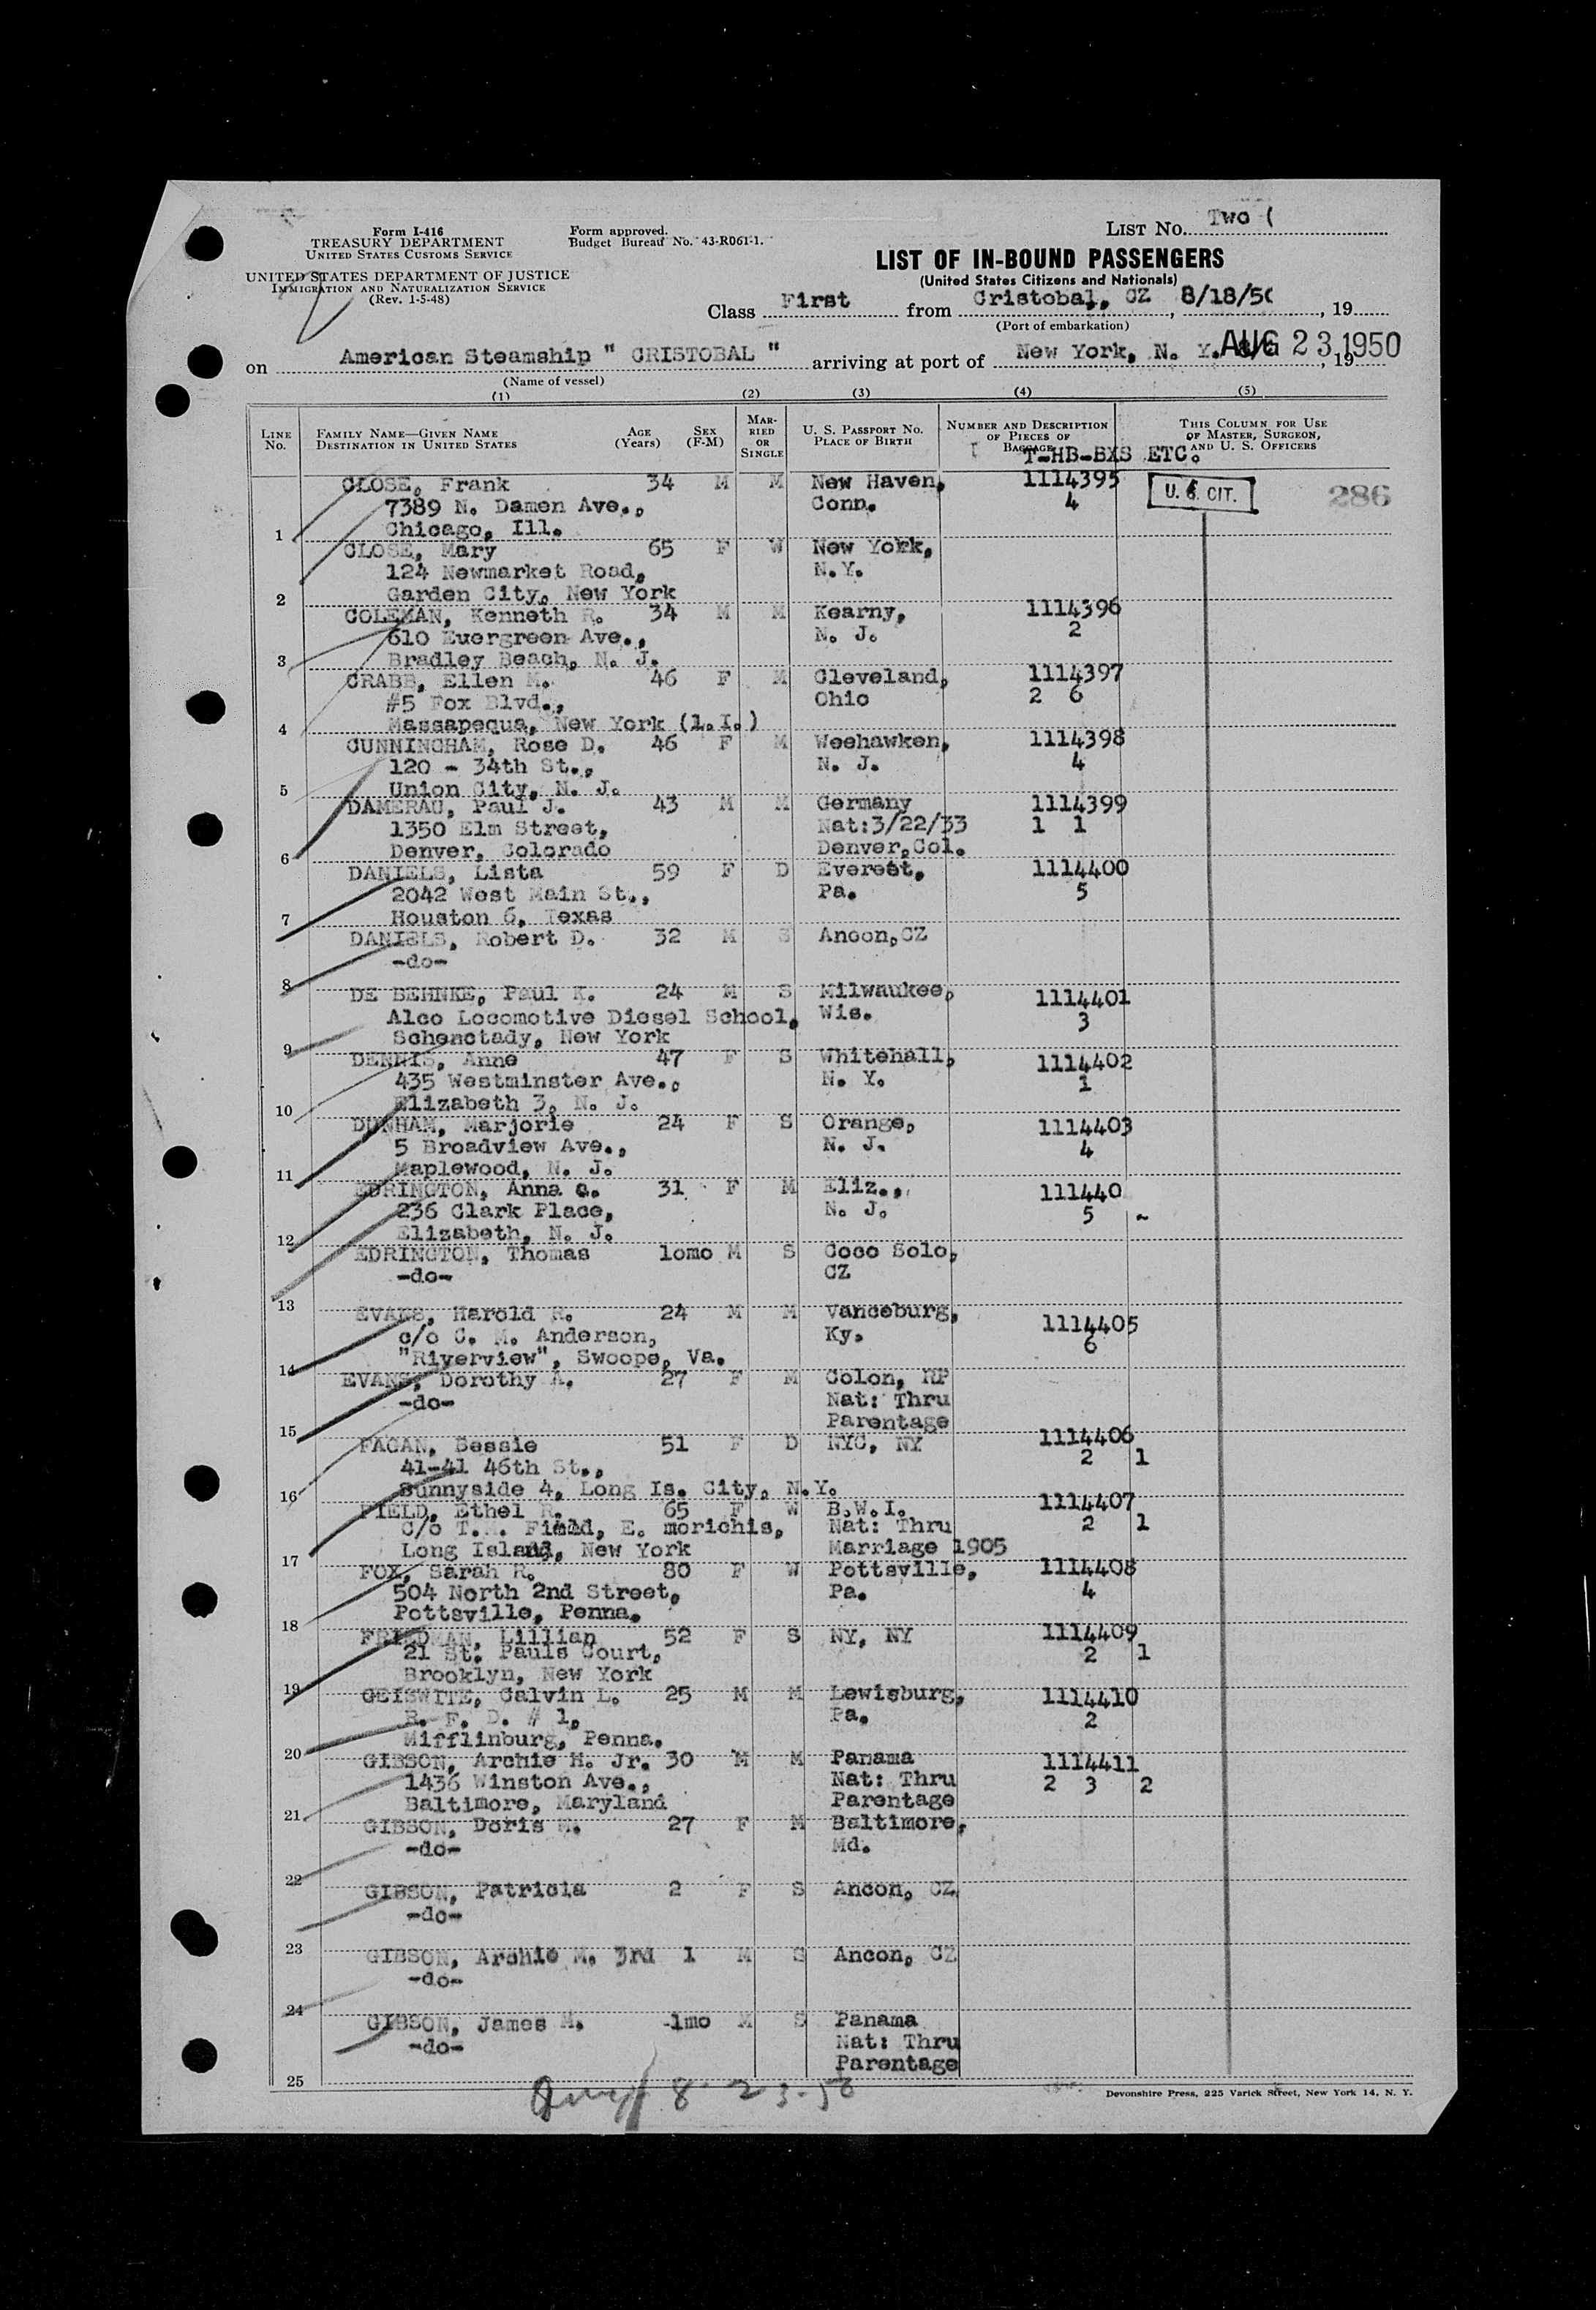 Form I-416
TREASURY DEPARTMENT
UNITED STATES CUSTOMS SERVICE
UNITED STATES DEPARTMENT OF JUSTICE
IMMIGRATION AND NATURALIZATION SERVICE
(Rev. 1-5-48)
Form approved.
Budget Bureau No. 43-R061-1.
LIST No. Two (
LIST OF IN-BOUND PASSENGERS
(United States Citizens and Nationals)
Class First from Cristobal, CZ 8/18/50, 19
(Port of embarkation)
on American Steamship " CRISTOBAL " arriving at port of New York, N. Y. AUG 23 1950, 19
(Name of vessel)
(1) (2) (3) (4) (5)
LINE No. FAMILY NAME—GIVEN NAME DESTINATION IN UNITED STATES AGE (Years) SEX (F-M) MARRIED OR SINGLE U. S. PASSPORT NO. PLACE OF BIRTH NUMBER AND DESCRIPTION OF PIECES OF BAGGAGE THIS COLUMN FOR USE OF MASTER, SURGEON, AND U. S. OFFICERS
T-HB-BXS ETC.
CLOSE, Frank 34 M M New Haven, 1114395 U. S. CIT. 286
7389 N. Damen Ave., Conn. 4
1 Chicago, Ill.
CLOSE, Mary 65 F W New York,
124 Newmarket Road, N.Y.
2 Garden City, New York
COLEMAN, Kenneth R. 34 M M Kearny, 1114396
610 Euergreen Ave., N. J. 2
3 Bradley Beach, N. J.
CRABB, Ellen M. 46 F M Cleveland, 1114397
#5 Fox Blvd., Ohio 2 6
4 Massapequa, New York (L.I.)
CUNNINGHAM, Rose D. 46 F M Weehawken, 1114398
120 - 34th St., N. J. 4
5 Union City, N. J.
DAMERAU, Paul J. 43 M M Germany 1114399
1350 Elm Street, Nat:3/22/33 1 1
6 Denver, Colorado Denver,Col.
DANIELS, Lista 59 F D Everest, 1114400
2042 West Main St., Pa. 5
7 Houston 6, Texas
DANIELS, Robert D. 32 M S Ancon,CZ
-do-
8
DE BEHNKE, Paul K. 24 M S Milwaukee, 1114401
Alco Locomotive Diesel School, Wis. 3
9 Schenctady, New York
DENNIS, Anne 47 F S Whitehall, 1114402
435 Westminster Ave., N. Y. 1
10 Elizabeth 3, N. J.
DUNHAM, Marjorie 24 F S Orange, 1114403
5 Broadview Ave., N. J. 4
11 Maplewood, N. J.
EDRINGTON, Anna c. 31 F M Eliz., 111440
236 Clark Place, N. J. 5 ~
12 Elizabeth, N. J.
EDRINGTON, Thomas 10mo M S Coco Solo,
-do- CZ
13
EVANS, Harold R. 24 M M Vanceburg, 1114405
c/o C. M. Anderson, Ky. 6
14 "Riverview", Swoope, Va.
EVANS, Dorothy A. 27 F M Colon, RP
-do- Nat: Thru
15 Parentage
FAGAN, Bessie 51 F D NYC, NY 1114406
41-41 46th St., 2 1
16 Sunnyside 4, Long Is. City, N.Y.
FIELD, Ethel R. 65 F W B.W.I. 1114407
c/o T. Field, E. morichis, Nat: Thru 2 1
17 Long Island, New York Marriage 1905
FOX, Sarah R. 80 F W Pottsville, 1114408
504 North 2nd Street, Pa. 4
18 Pottsville, Penna.
FRIEDMAN, Lillian 52 F S NY, NY 1114409
21 St. Pauls Court, 2 1
19 Brooklyn, New York
GEISWITE, Calvin L. 25 M M Lewisburg, 1114410
R. F. D. # 1, Pa. 2
20 Mifflinburg, Penna.
GIBSON, Archie H. Jr. 30 M M Panama 1114411
1436 Winston Ave., Nat: Thru 2 3 2
21 Baltimore, Maryland Parentage
GIBSON, Doris M. 27 F M Baltimore,
-do- Md.
22
GIBSON, Patricia 2 F S Ancon, CZ
-do-
23
GIBSON, Archie M. 3rd 1 M S Ancon, CZ
-do-
24
GIBSON, James M. 1mo M S Panama
-do- Nat: Thru
25 Parentage
8-23-50
Devonshire Press, 225 Varick Street, New York 14, N. Y.